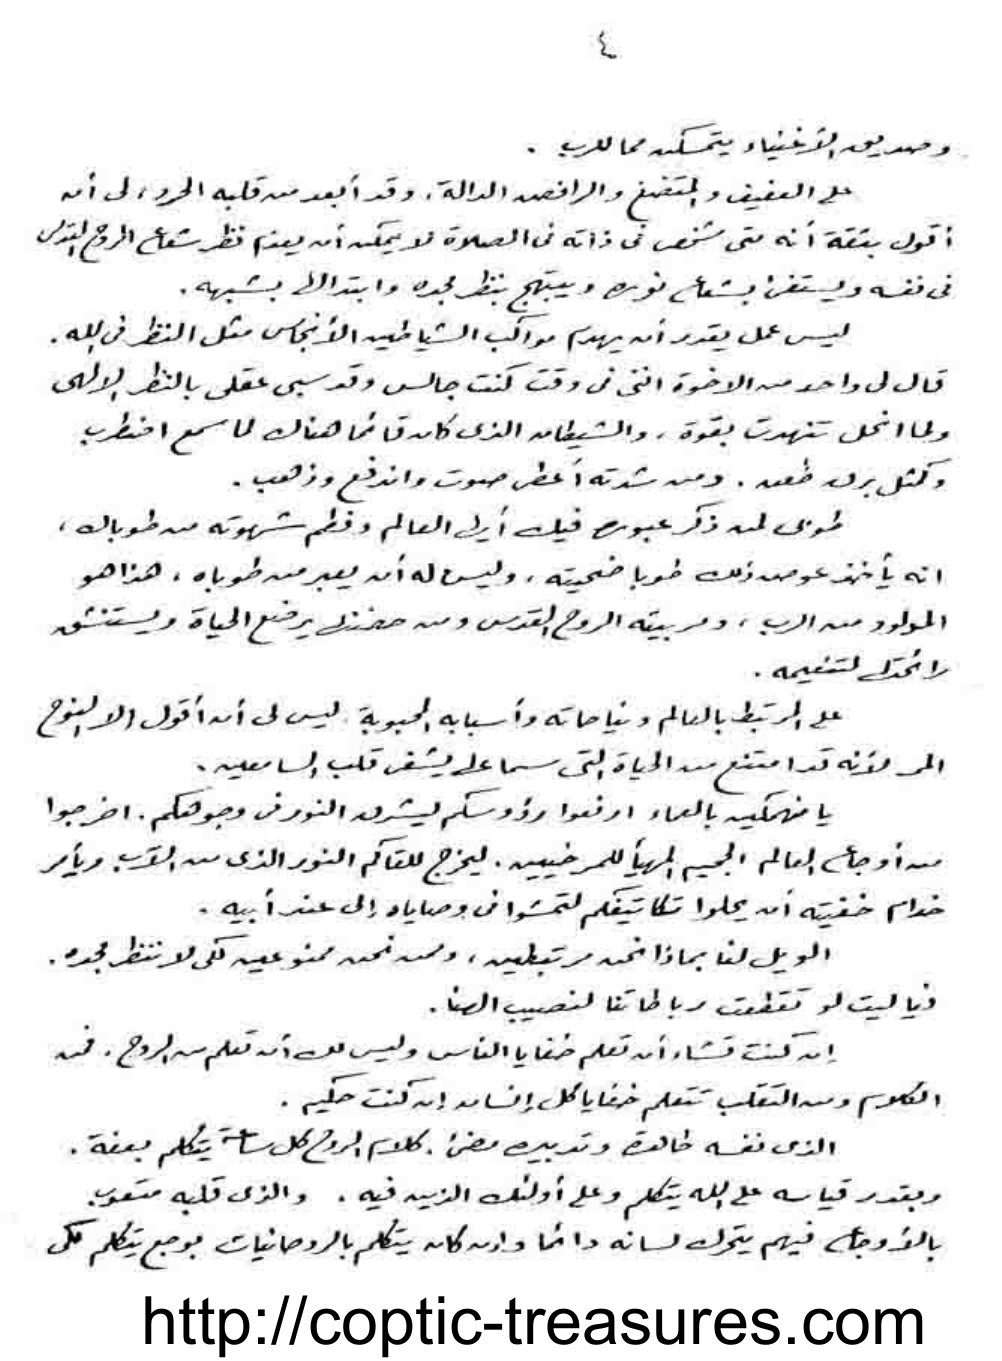 ٤
وصديق الأغنياء يتمسكن مما للرب .
على العفيف والمتضع والرافض الدالة ، وقد أبعد من قلبه الحرد ، لى أن
أقول بثقة أنه متى شخص فى ذاته فى الصلاة لا يمكن أن يعدم نظر شعاع الروح القدس
فى نفسه ويستضئ بشعاع نوره ويبتهج بنظر مجده وابتدالى بشبهه .
ليس عمل يقدر أن يهدم مواكب الشياطين الأنجاس مثل النظر فى الله .
قال لى واحد من الاخوة اننى فى وقت كنت جالس وقد سبى عقلى بالنظر الإلهى
ولما انحل تنهدت بقوة ، والشيطان الذى كان قائما هناك لما سمع اضطرب
وكمثل برق طعن . ومن شدته أعطى صوت واندفع وذهب .
طوبى لمن ذكر عبوره فيك أيها العالم وفطم شهوته من طوباك ،
انه يأخذ عوض ذلك طوبا ضحيته ، وليس له أن يعبر من طوباه ، هذا هو
المولود من الرب ، ومربيته الروح القدس ومن حضنها يرضع الحياة ويستنشق
رائحتها لتنعيمه .
على المرتبط بالعالم ونياحاته وأسبابه المحبوبة ليس لى أن أقول الا النوح
المر لأنه قد امتنع من الحياة التى سماعها يشفى قلب السامعين .
يا منهمكين بالعماء ارفعوا رؤوسكم ليشرق النور فى وجوهكم . اخرجوا
من أوجاع العالم الجحيم المهيأ للمرخيين . ليخرج للقاكم النور الذى من الآب ويأمر
خدام خفيته أن يحلوا تكاتيفكم لتمشوا فى وصاياه إلى عند أبيه .
الويل لنا بماذا نحن مرتبطين ، وممن نحن ممنوعين لكى لا ننظر مجده .
فيا ليت لو تقطعت رباطاتنا لنصيب الهنا .
إن كنت تشاء أن تعلم خفايا الناس وليس لك أن تعلم من الروح . فمن
الكلام ومن التقلب تتعلم خفايا كل إنسان إن كنت حكيم .
الذى نفسه طاهرة وتدبيره مضئ . كلام الروح كل ساعة يتكلم بعفة .
وبقدر قياسه على الله يتكلم وعلى أولئك الذين فيه . والذى قلبه متعوب
بالأوجاع فيهم يتحرك لسانه دائما وإن كان يتكلم بالروحانيات بوجع يتكلم لكى
http://coptic-treasures.com